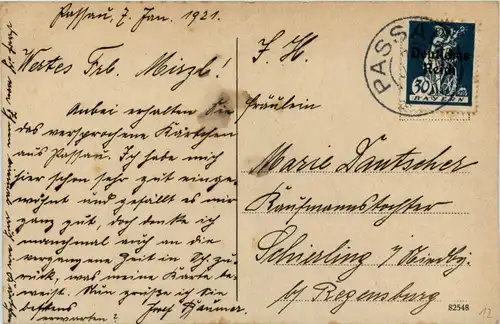 Passau, 7. Jan. 1921.
Wertes Frl. Mirzl!
Anbei erhalten Sie
das versprochene Kärtchen
aus Passau. Ich habe mich
hier schon sehr gut einge-
wöhnt und gefällt es mir
ganz gut, doch denke ich
manchmal auch an die
vergangene Zeit in Sch. zu-
rück, was meine Karte be-
weist. Nun grüße ich Sie
bestens
Josef
erwarten?
F. H.
Fräulein
Marie Dantscher
Kaufmannstochter
Schierling i/Niedby.
b/ Regensburg
82548
12
PASSA
Deutsches
Reich
30
BAYERN